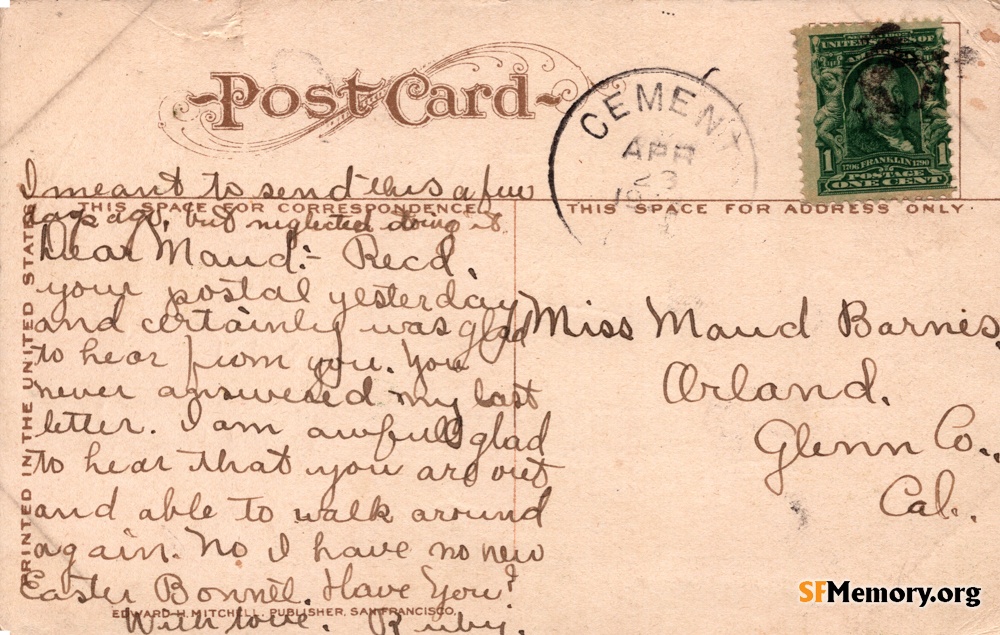 Post Card
CEMENT
APR
23
SERIES 1902
UNITED STATES OF
AMERICA
1 1
1706 FRANKLIN 1790
POSTAGE
ONE CENT
THIS SPACE FOR CORRESPONDENCE
THIS SPACE FOR ADDRESS ONLY.
PRINTED IN THE UNITED STATES
I meant to send this a few
days ago, but neglected doing it.
Dear Maud:- Recd.
your postal yesterday
and certainly was glad
to hear from you. You
never answered my last
letter. I am awfully glad
to hear that you are out
and able to walk around
again. No I have no new
Easter Bonnet. Have You?
With love. Ruby.
EDWARD H. MITCHELL, PUBLISHER, SAN FRANCISCO.
Miss Maud Barnes,
Orland,
Glenn Co.,
Cal.
SFMemory.org